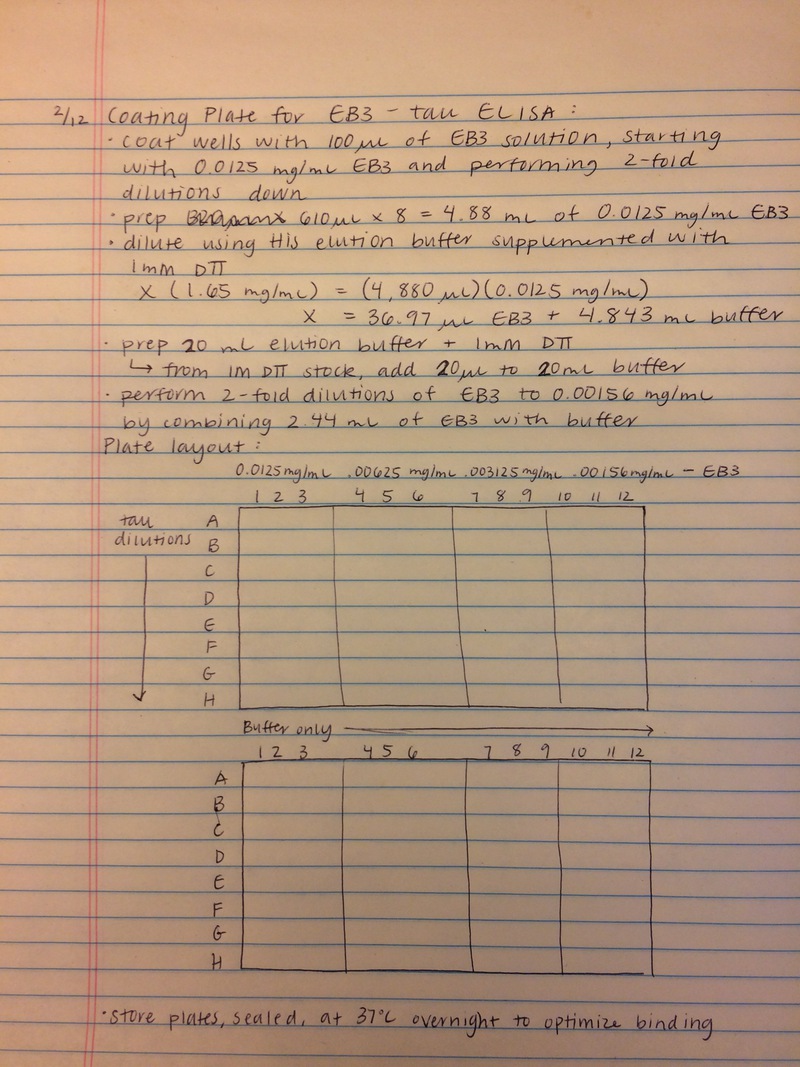 2/12 Coating Plate for EB3 - tau ELISA :
· coat wells with 100 µL of EB3 solution, starting
with 0.0125 mg/mL EB3 and performing 2-fold
dilutions down
· prep 610 µL x 8 = 4.88 mL of 0.0125 mg/mL EB3
· dilute using His elution buffer supplemented with
1mM DTT
X (1.65 mg/mL) = (4,880 µL)(0.0125 mg/mL)
X = 36.97 µL EB3 + 4.843 mL buffer
· prep 20 mL elution buffer + 1mM DTT
↳ from 1M DTT stock, add 20µL to 20mL buffer
· perform 2-fold dilutions of EB3 to 0.00156 mg/mL
by combining 2.44 mL of EB3 with buffer
Plate layout :
0.0125mg/mL .00625 mg/mL .003125mg/mL .00156mg/mL - EB3
1 2 3 4 5 6 7 8 9 10 11 12
tau A
dilutions B
C
D
E
F
G
H
Buffer only
1 2 3 4 5 6 7 8 9 10 11 12
A
B
C
D
E
F
G
H
· store plates, sealed, at 37°C overnight to optimize binding